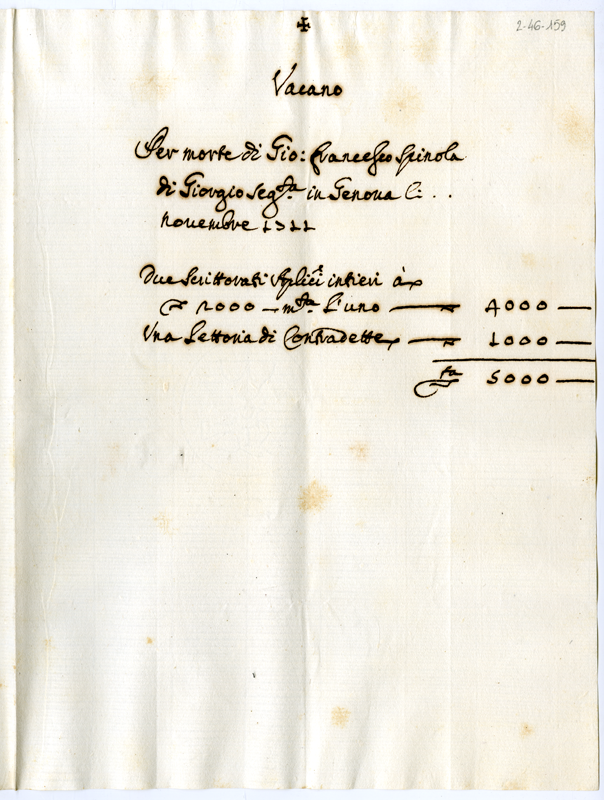 ✠
2-46-159
Vacano
Per morte di Gio: Francesco Spinola
di Giorgio seg.ta in Genova li . .
novembre 1711
Due scrittorati aplici intieri à
2000 — m.ta l'uno — 4000 —
Una lettoria di Contradette — 1000 —
5000 —